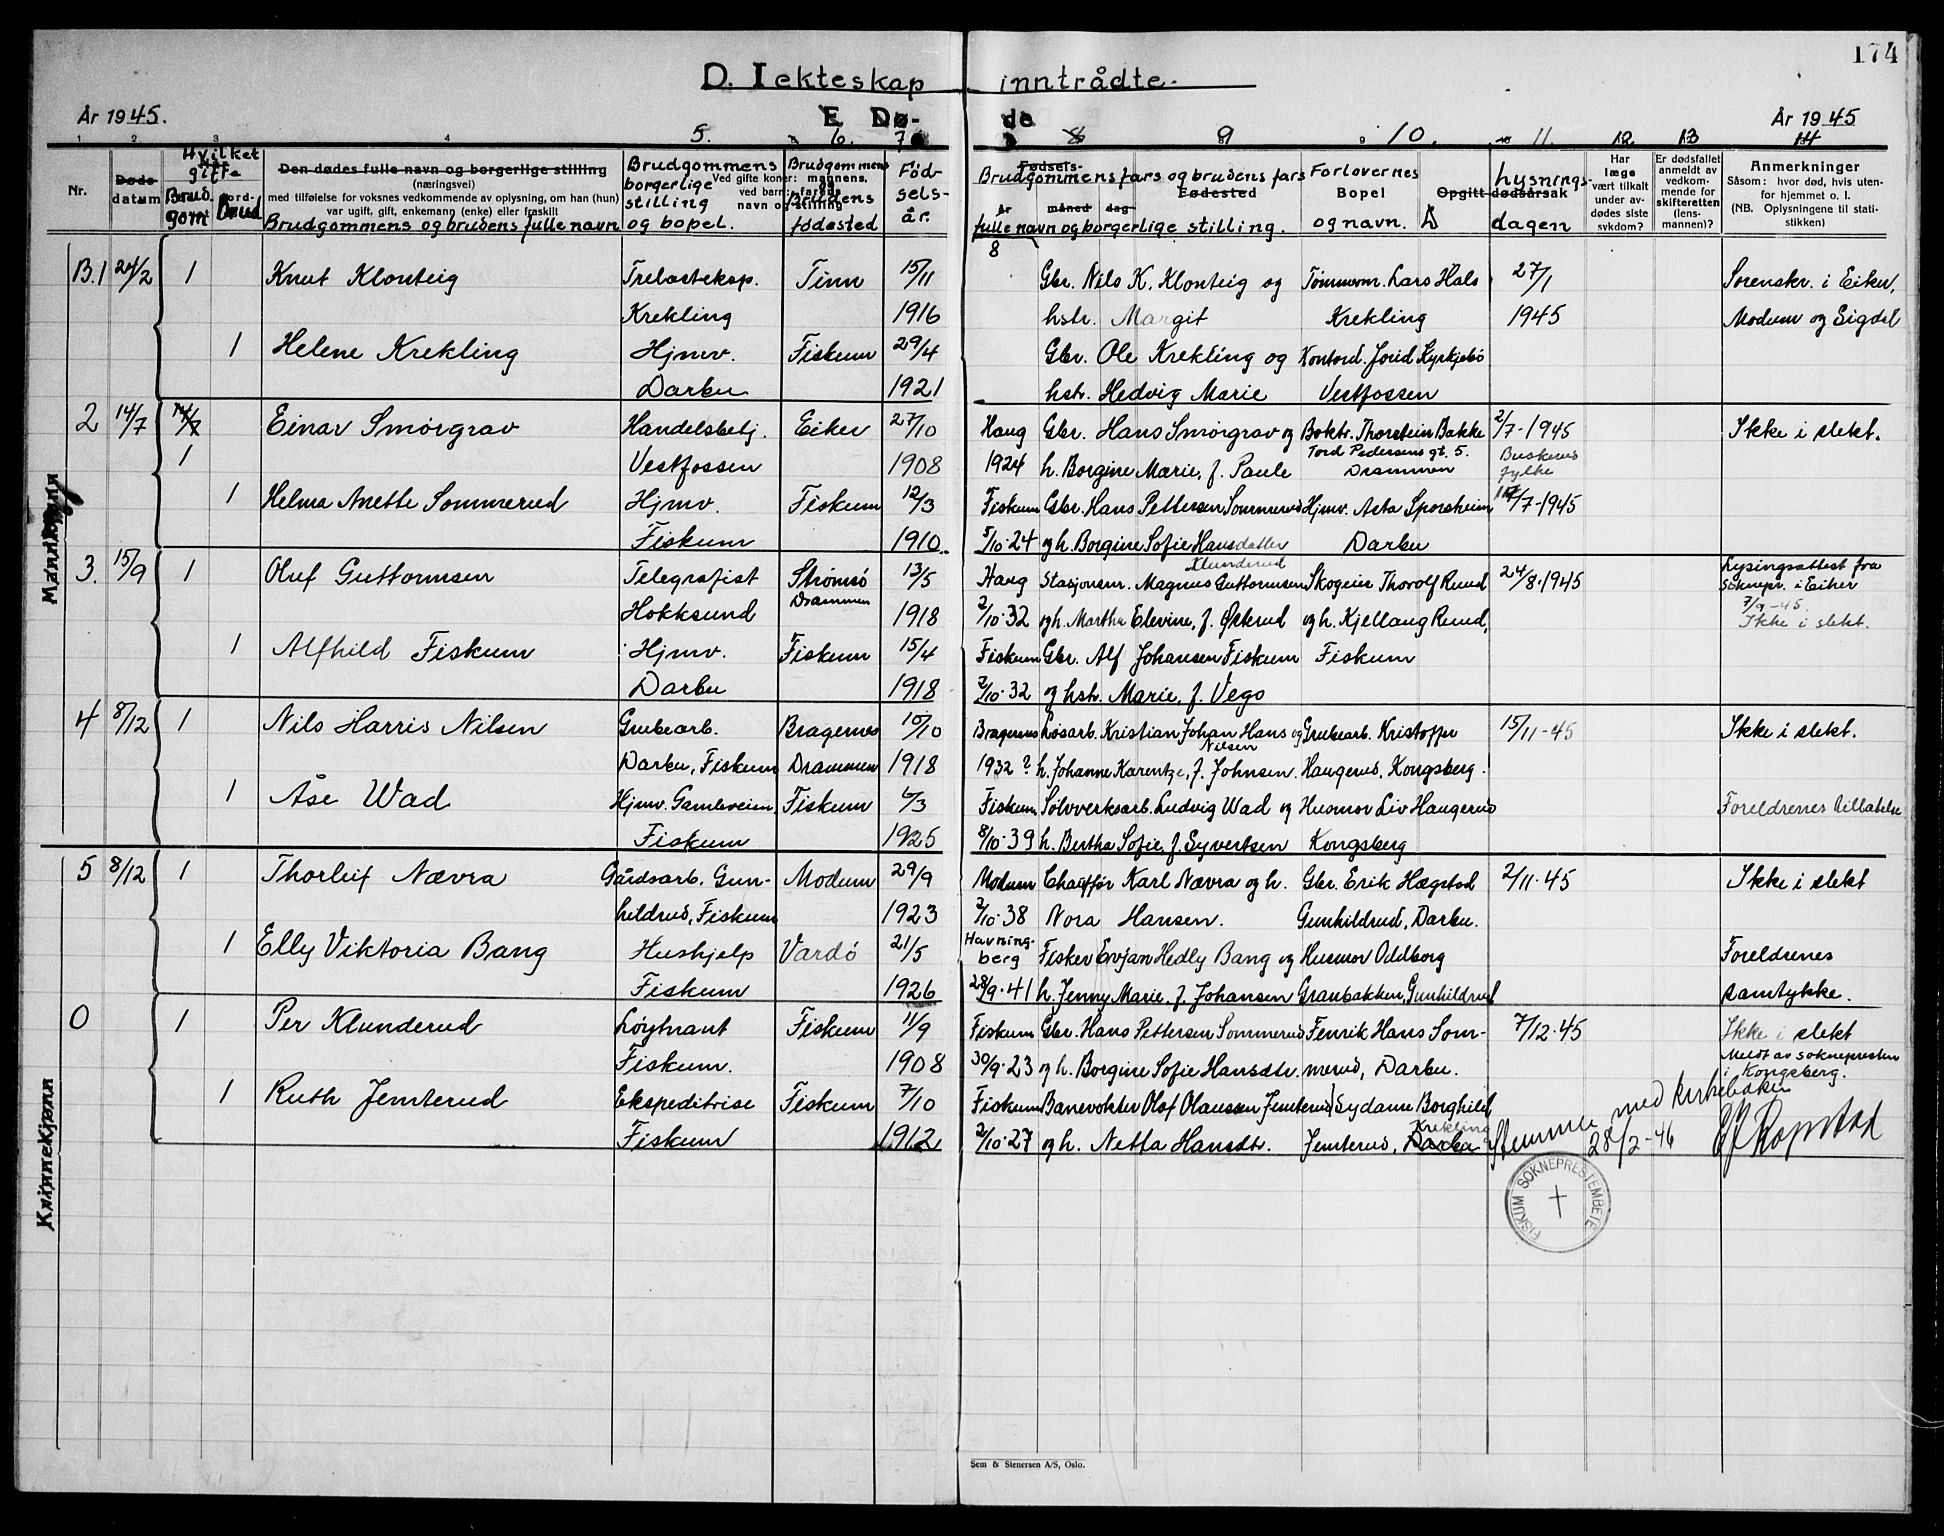 174
D. I ekteskap inntrådte.
År 1945. E. Dø- de År 1945
1 2 3 4 5. 6. 7 8 9 10. 11. 12 13 14
Nr.
Døds-
datum
Hvilket
gifte
Brud-
gom
Brud
Den dødes fulle navn og borgerlige stilling
(næringsvei)
med tilføielse for voksnes vedkommende av oplysning, om han (hun)
var ugift, gift, enkemann (enke) eller fraskilt
Brudgommens og brudens fulle navn
Brudgommens
borgerlige
stilling
og bopel.
Ved gifte koner: mannens,
ved barn: farens
navn og stilling
Brudgommens
og
Brudens
fødested
Fød-
sels-
år.
Fødsels-
År måned dag
Fødested
Brudgommens fars og brudens fars
fulle navn og borgerlige stilling.
8
Forlovernes
Bopel
og navn.
Opgitt dødsårsak
Lysnings-
dagen
Har
læge
vært tilkalt
under av-
dødes siste
sykdom?
Er dødsfallet
anmeldt av
vedkom-
mende for
skifteretten
(lens-
mannen)?
Anmerkninger
Såsom: hvor død, hvis uten-
for hjemmet o. l.
(NB. Oplysningene til stati-
stikken)
B.1 24/2 1 Knut Klonteig Trelasteksp. Tinn 15/11 Gbr. Nils K. Klonteig og Tømmerm. Lars Hals 27/1 Sorenskr. i Eiker,
Krekling 1916 hstr. Margit Krekling 1945 Modum og Sigdal
1 Helene Krekling Hjmv. Fiskum 29/4 Gbr. Ole Krekling og Kontord. Jorid Kyrkjebø
Darbu 1921 hstr. Hedvig Marie Vestfossen
2 14/7 14/7 Einar Smørgrav Handelsbetj. Eiker 27/10 Haug Gbr. Hans Smørgrav og Boktr. Thorstein Bakke 2/7-1945 Ikke i slekt.
1 Vestfossen 1908 1924 h. Borgine Marie, f. Paule Tord Pedersens gt. 5. Drammen Buskerud fylke
1 Helma Anette Sommerud Hjmv. Fiskum 12/3 Fiskum Gbr. Hans Pettersen Sommerud Hjmv. Asta Sporsheim /7-1945
Fiskum 1910. 5/10-24 og h. Borgine Sofie Hansdatter Darbu
Klunderud
3. 15/9 1 Oluf Guttormsen Telegrafist Strømsø 13/5 Haug Stasjonsm. Magnus Guttormsen Skogeier Thorolf Ruud 24/8-1945 Lysingsattest fra
Sokнepr. i Eiker
Hokksund Drammen 1918 2/10-32 og h. Martha Elevine, f. Økerud og h. Kjellaug Ruud, 7/9-45.
Ikke i slekt.
1 Alfhild Fiskum Hjmv. Fiskum 15/4 Fiskum Gbr. Alf Johansen Fiskum Fiskum
Darbu 1918 2/10-32 og hstr. Marie, f. Vego
4 8/12 1 Nils Harris Nilsen Grubearb. Bragernes 10/10 Bragernes Løsarb. Kristian Johan Hans og Grubearb. Kristoffer 15/11-45 Ikke i slekt.
Nilsen
Darbu, Fiskum Drammen 1918 1932? h. Johanne Karentze, f. Johnsen. Haugerud, Kongsberg.
1 Åse Wad Hjmv. Gamleveien, Fiskum 6/3 Fiskum Sølvverksarb. Ludvig Wad og Husmor Liv Haugerud Foreldrenes tillatelse
Fiskum 1925 8/10-39 h. Bertha Sofie, f. Syvertsen Kongsberg
5 8/12 1 Thorleif Nævra Gårdsarb. Gun- Modum 29/9 Modum Chauffør Karl Nævra og h. Gbr. Erik Hægstad 2/11-45 Ikke i slekt
hildrud, Fiskum 1923 2/10-38 Nora Hansen. Gunhildrud, Darbu.
1 Elly Viktoria Bang Hushjelp Vardø 21/5 Havning-
berg Fisker Evjan Hedly Bang og Husmor Oddborg Foreldrenes
Fiskum 1926 28/9-41 h. Jenny Marie, f. Johansen Granbakken, Gunhildrud samtykke.
0 1 Per Klunderud Løytnant Fiskum 11/9 Fiskum Gbr. Hans Pettersen Sommerud Fenrik Hans Som- 7/12-45 Ikke i slekt
Fiskum. 1908 30/9-23 og h. Borgine Sofie Hansdtr. merud, Darbu. Meldt av sokнepresten
i Kongsberg.
1 Ruth Jemterud Ekspeditrise Fiskum 7/10 Fiskum Banevokter Olaf Olaussen Jemterud Sydame Borghild
Fiskum 1912 2/10-27 og h. Netta Hansdtr. Jemterud, Krekling Darbu
Stemmer med kirkeboken
28/2-46
Mannkjønn
Kvinnekjønn
FISKUM SOKNEPRESTEMBETE
Sem & Stenersen A/S, Oslo.